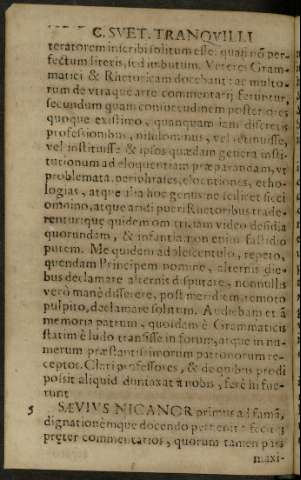 C. SVET. TRANQVILLI
teratorem inscribi solitum esse: quasi nō per-
fectum literis, sed imbutum. Veteres Gram-
matici & Rhetoricam docebant: ac multo-
rum de vtraque arte commentarij feruntur,
secundum quam consuetudinem posteriores
quoque existimo, quanquam iam discretis
professionibus, nihilominus, vel retinuisse,
vel instituisse & ipsos quædam genera insti-
tutionum ad eloquentiam præparandam, vt
problemata, periphrases, elocutiones, etho-
logias, atque alia hoc genus: ne scilicet sicci
omnino, atque aridi pueri Rhetoribus trade-
rentur: quæ quidem omitti, iam video desidia
quorundam, & infantia. non enim fastidio
putem. Me quidem adolescentulo, repeto,
quendam Principem nomine, alternis die-
bus declamare alternis disputare, nonnullis
verò manè disserere, post meridiem, remoto
pulpito, declamare solitum. Audiebam et à
memoria patrum, quosdam è Grammaticis
statim è ludo transisse in forum, atque in nu-
merum præstantissimorum patronorum re-
ceptos. Clari professores, & de quibus prodi
possit aliquid duntaxat à nobis, ferè hi fue-
runt
5 SÆVIVS NICANOR primus ad famā,
dignationémque docendo peruenit: fecitq;
pręter commentarios, quorum tamen pars
maxi-